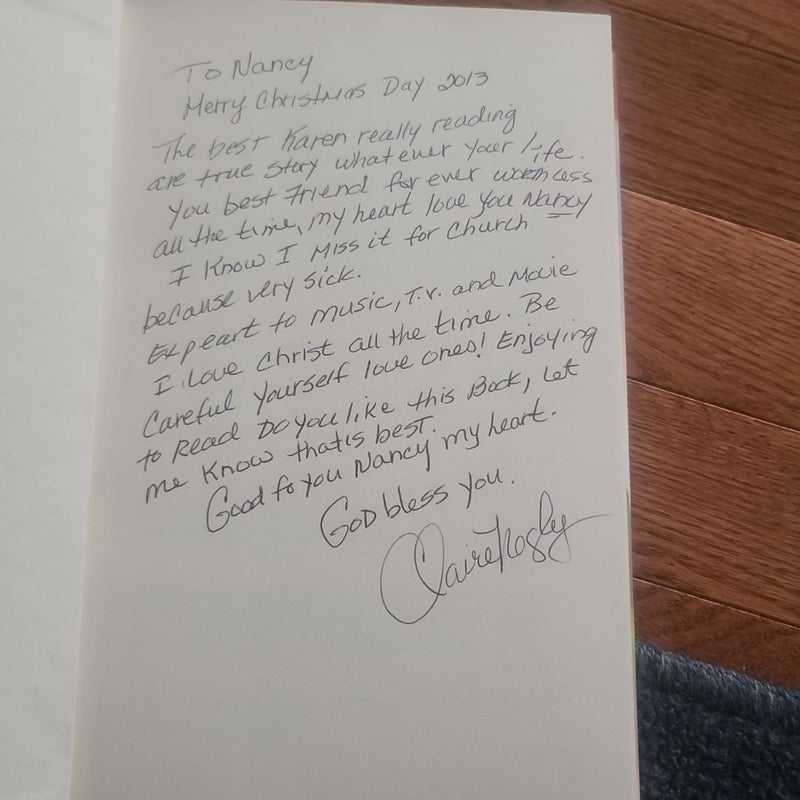 To Nancy
Merry Christmas Day 2013
The best Karen really reading
are true story whatever your life.
You best Friend for ever
all the time, my heart love you Nancy
I Know I Miss it for Church
because very sick.
Expeart to music, T.V. and Movie
I love Christ all the time. Be
Careful Yourself love ones! Enjoying
to Read Do you like this Book, Let
me Know thatis best.
Good fo you Nancy my heart.
God bless you.
Claire